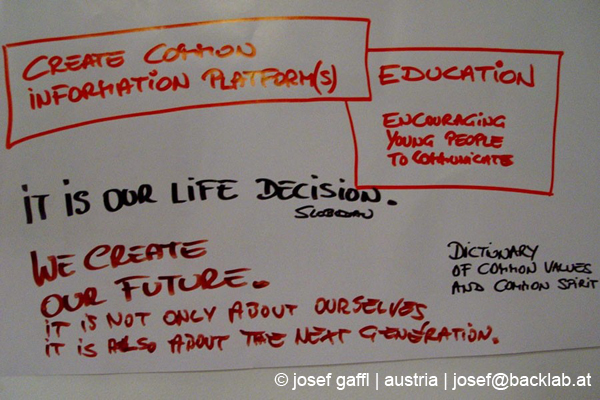 CREATE COMMON
INFORMATION PLATFORM(S)
EDUCATION
ENCOURAGING
YOUNG PEOPLE
TO COMMUNICATE
IT IS OUR LIFE DECISION.
SLOBODAN
WE CREATE
OUR FUTURE.
IT IS NOT ONLY ABOUT OURSELVES
IT IS ALSO ABOUT THE NEXT GENERATION.
DICTIONARY
OF COMMON VALUES
AND COMMON SPIRIT
© josef gaffl | austria | josef@backlab.at